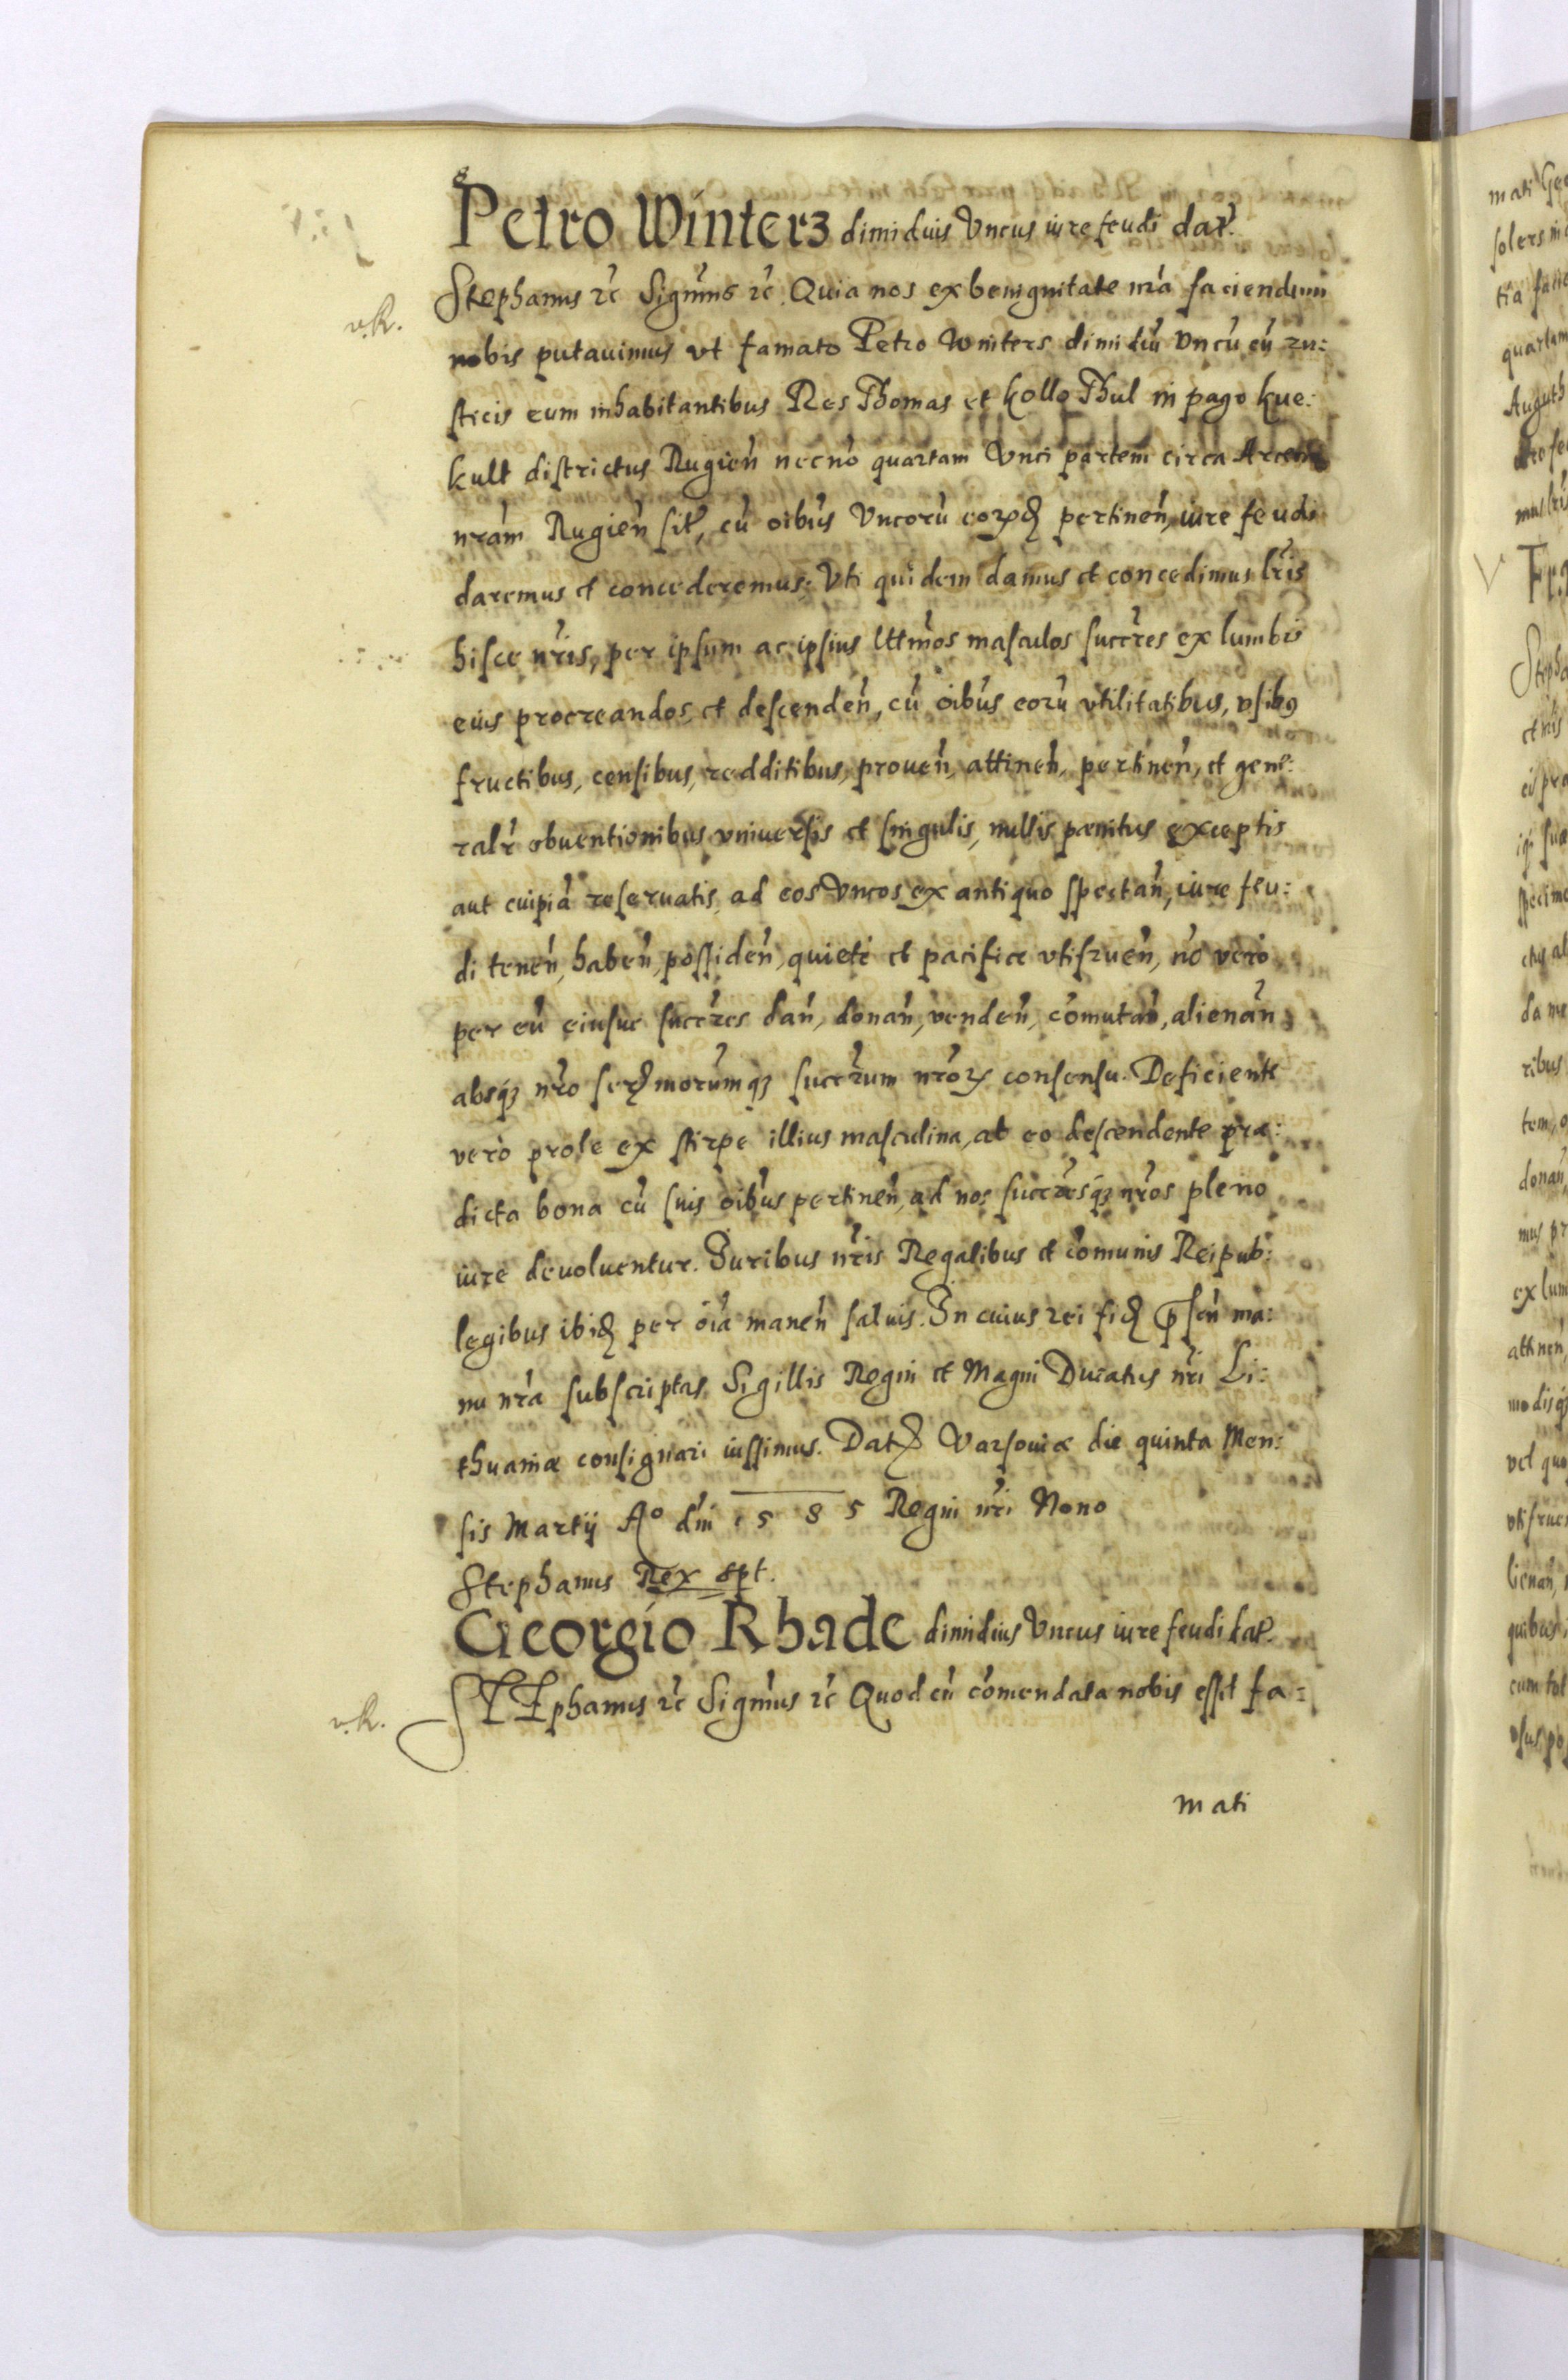 Petro Winterz dimidius Vncus iure feudi datr̃.
Stephanus ꝛc̃ Signm̃us ꝛc̃. Quia nos ex benignitate nr̃a faciendum
v.R.
nobis putauimus vt famato Petro Winters dimidiũ Vncũ cũ ru:
sticis eum inhabitantibus Res Thomas et Kollo Thul in pago Kue:
kult districtus Rugień necnõ quartam Vnci partem circa Arcem
nrãm Rugień sitã, cũ oĩbus Vncorũ eorꝫđ pertineñ, iure feudi
daremus et concederemus, Vti quidem damus et concedimus lr̃is
hisce nr̃is, per ipsum ac ipsius lttm̃os masculos succr̃es ex lumbis
eius procreandos, et descendeñ, cũ oĩbus eorũ vtilitatibus, vsibꝯ
fructibus, censibus, redditibus, proueñ, attineñ, pertineñ, et gene:
ralr̃ obuentionibus vniuersis et singulis, nullis pænitus exceptis
aut cuipiã reseruatis, ad eos Vncos ex antiquo spectañ, iure feu:
di teneñ, habeñ, possideñ, quietè et pacifice vtifrueñ, nõ verò
per eũ eiusue succr̃es dañ, donañ, vendeñ, cõmutañ, alienañ
absqꝫ nr̃o serꝫmorumqꝫ succr̃rum nr̃orꝫ consensu. Deficiente
verò prole ex stirpe illius masculina, ab eo descendente præ:
dicta bona cũ suis oĩbus pertineñ, ad nos succr̃esqꝫ nr̃os pleno
iure deuoluentur. Iuribus nr̃is Regalibus et cõmunis Reipub:
legibus ibiđ per oĩa maneñ saluis. In cuius rei fiđ p̃señ ma:
nu nr̃a subscriptas Sigillis Regni et Magni Ducatus nr̃i Li:
thuaniæ consignari iussimus. Datꝫ Varsouiæ die quinta Men:
sis Martij Aº dn̄i 1585 Regni nr̃i Nono
Stephanus Rex spt.
Georgio Rhade dimidius Vncus iure feudi datr̃.
STEphanus ꝛc̃ Signm̃us ꝛc̃ Quod cũ cõmendata nobis esset fa:
v.R.
mati